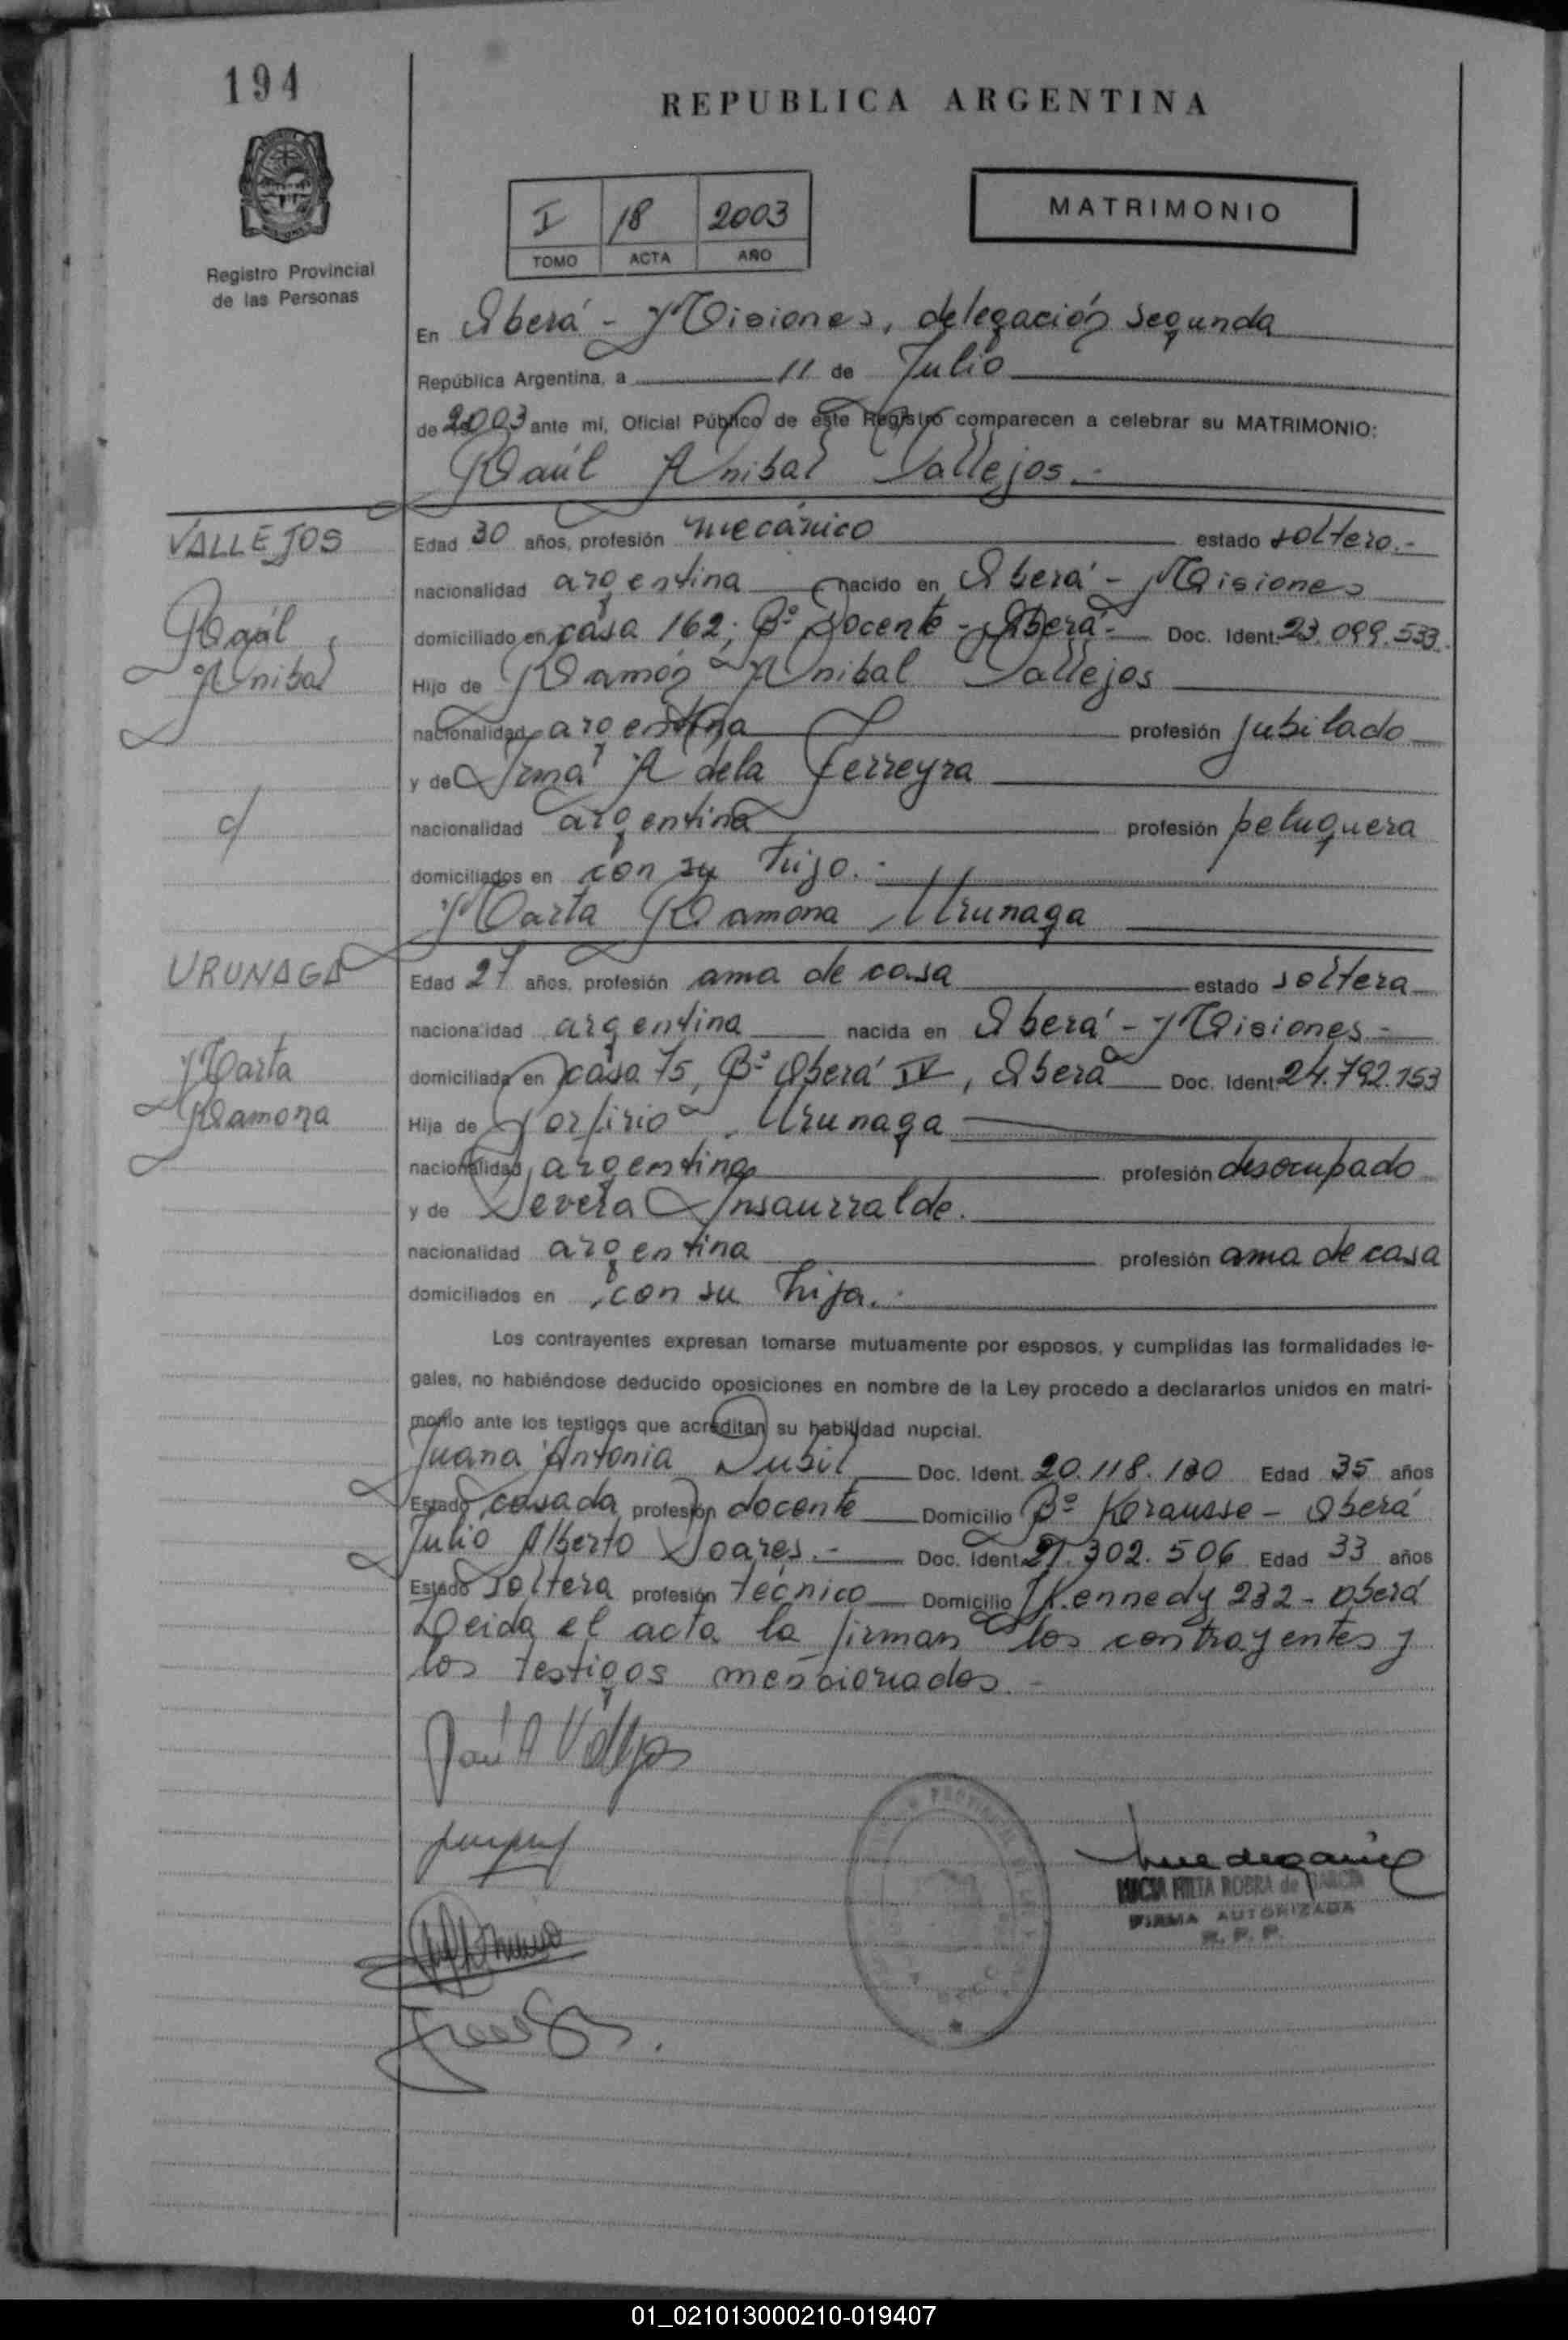 194
REPUBLICA ARGENTINA
I 18 2003
TOMO ACTA AÑO
MATRIMONIO
Registro Provincial
de las Personas
En Oberá - Misiones, delegación segunda
República Argentina, a 11 de Julio
de 2003 ante mí, Oficial Público de este Registro comparecen a celebrar su MATRIMONIO:
Raúl Anibal Vallejos.-
VALLEJOS
Edad 30 años, profesión mecánico estado soltero.-
nacionalidad argentina nacido en Oberá - Misiones
Raúl
domiciliado en casa 162, Bº Docente - Oberá - Doc. Ident. 23.099.533.
Anibal
Hijo de Ramón Anibal Vallejos
nacionalidad argentina profesión jubilado
y de Irma Adela Ferreyra
c/
nacionalidad argentina profesión peluquera
domiciliados en con su hijo.-
Marta Ramona Urunaga
URUNAGA
Edad 27 años, profesión ama de casa estado soltera
nacionalidad argentina nacida en Oberá - Misiones -
Marta
domiciliada en casa 75, Bº Oberá IV, Oberá Doc. Ident. 24.792.153
Ramona
Hija de Porfirio Urunaga
nacionalidad argentina profesión desocupado
y de Severa Insaurralde.
nacionalidad argentina profesión ama de casa
domiciliados en con su hija.-
Los contrayentes expresan tomarse mutuamente por esposos, y cumplidas las formalidades le-
gales, no habiéndose deducido oposiciones en nombre de la Ley procedo a declararlos unidos en matri-
monio ante los testigos que acreditan su habilidad nupcial.
Juana Antonia Dubil Doc. Ident. 20.118.130 Edad 35 años
Estado casada profesión docente Domicilio Bº Krausse - Oberá
Julio Alberto Soares.- Doc. Ident. 21.302.506 Edad 33 años
Estado soltera profesión técnico Domicilio Kennedy 232 - Oberá
Leida el acta la firman los contrayentes y
los testigos mencionados.-
Raúl A Vallejos
ROBRA de GARCIA
FIRMA AUTORIZADA
R. P. P.
01_021013000210-019407